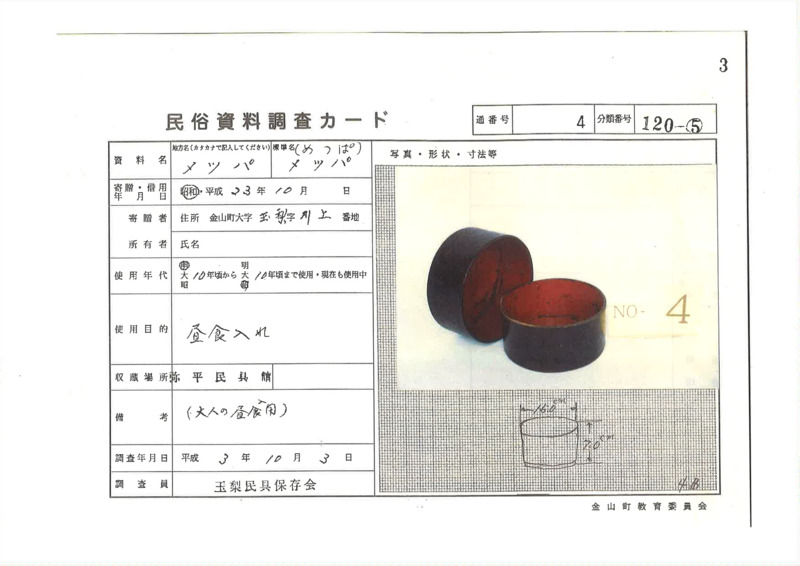 3
民俗資料調査カード
通番号 4 分類番号 120-⑤
資料名 地方名(カタカナで記入してください) メツパ 標準名(めっぱ) メツパ
写真・形状・寸法等
寄贈・借用年月日 昭和・平成 23年 10月 日
寄贈者 住所 金山町大字 玉梨字 川上 番地
所有者 氏名
使用年代 明 大 昭 10年頃から 明 大 昭 10年頃まで使用・現在も使用中
使用目的 昼食入れ
収蔵場所 弥平民具館
備考 (大人の昼食入用)
調査年月日 平成 3年 10月 3日
調査員 玉梨民具保存会
NO. 4
16.0cm
7.0cm
金山町教育委員会